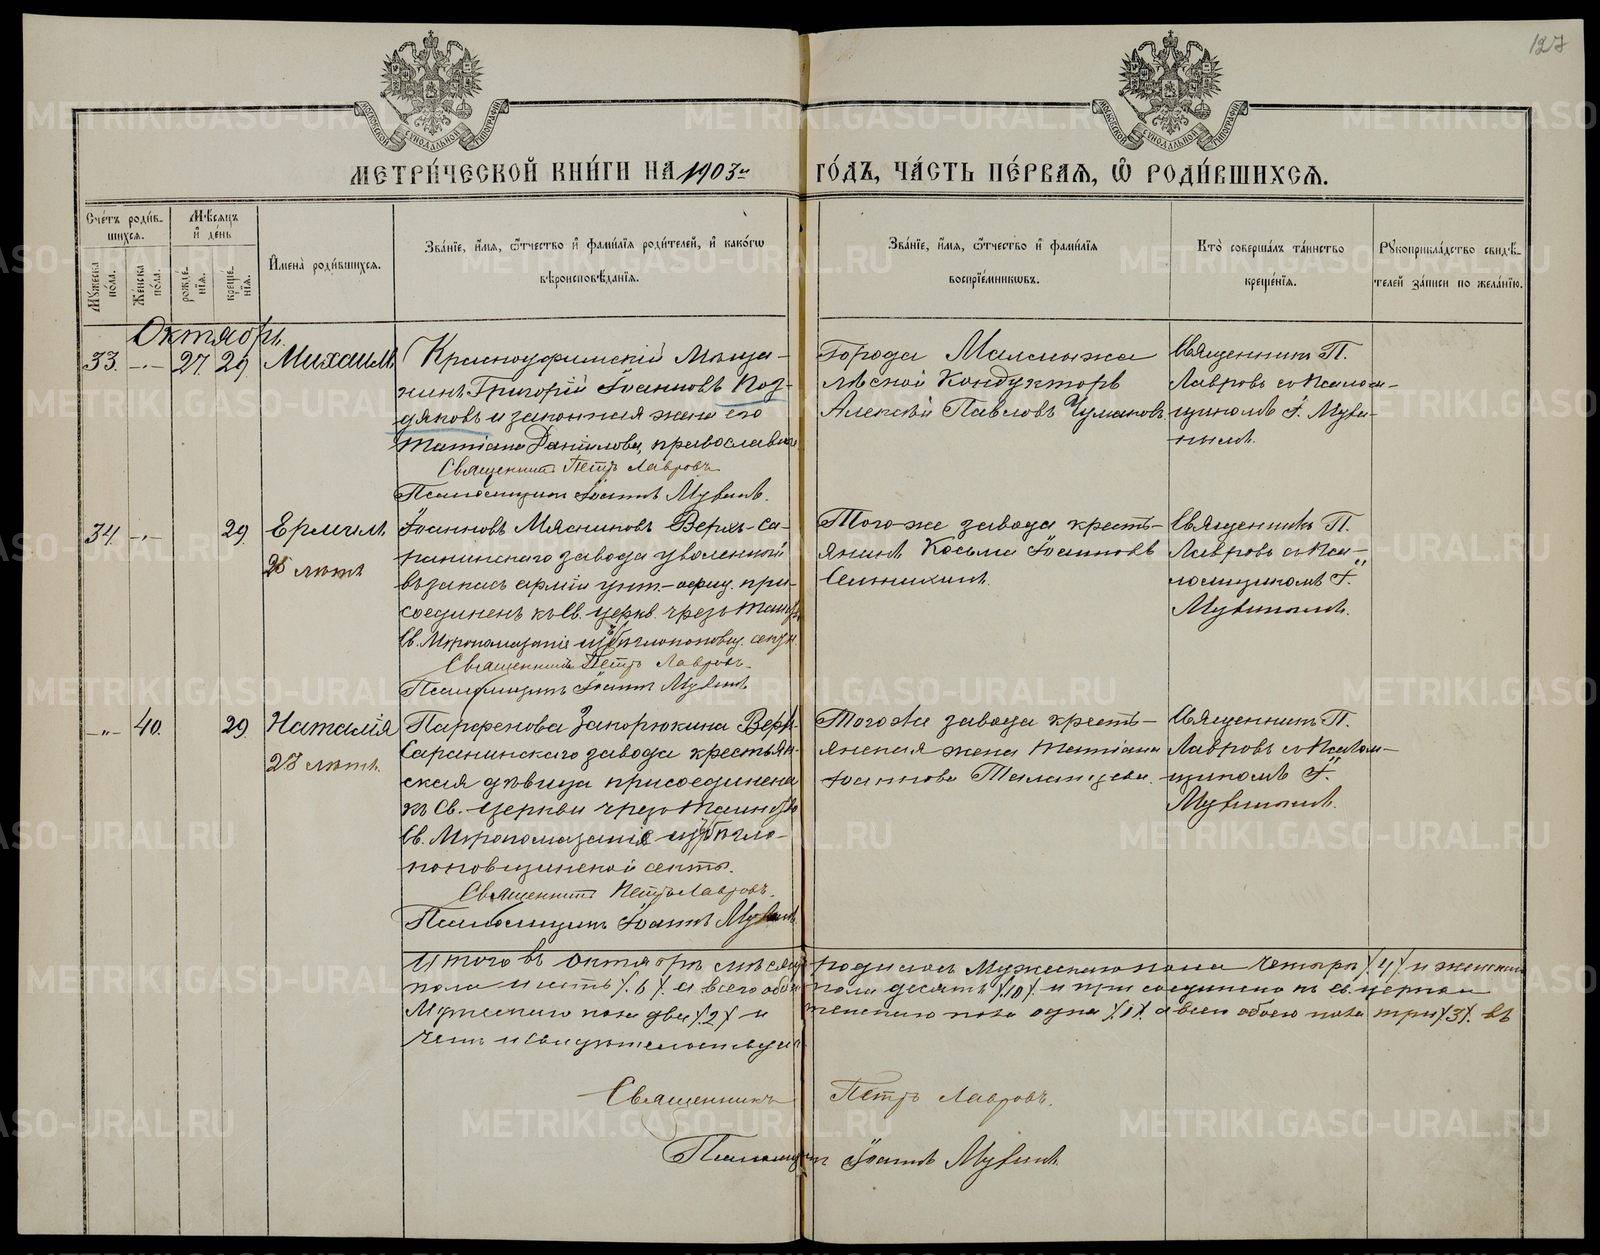 127
МОСКОВСКОЙ СѴНОДАЛЬНОЙ ТИПОГРАФІИ
МОСКОВСКОЙ СѴНОДАЛЬНОЙ ТИПОГРАФІИ
МЕТРИ́ЧЕСКОЙ КНИ́ГИ НА 1903й ГО́ДЪ, ЧА́СТЬ ПЕ́РВАѦ, Ѽ РОДИ́ВШИХСѦ.
Сче́тъ роди́в-
шихсѧ.
Мꙋ́жеска по́ла.
Же́нска по́ла.
Мѣ́сѧцъ
и҆ де́нь
рожде́-
нїѧ.
креще́-
нїѧ.
И҆мена̀ роди́вшихсѧ.
Зва́нїе, и҆́мѧ, ѻ҆́тчество и҆ фамѝлїѧ роди́телей, и҆ како́гѡ
вѣроисповѣ́данїѧ.
Зва́нїе, и҆́мѧ, ѻ҆́тчество и҆ фамѝлїѧ
воспрїе́мникѡвъ.
Кто̀ соверша́лъ та́инство
креще́нїѧ.
Рꙋкоприкла́дство свидѣ́-
телей за́писи по жела́нїю.
Октябрь.
33. -"- 27. 29. Михаилъ
Красноуфимскій Мѣща-
нинъ Григорій Іоанновъ Поз-
дяковъ и законная жена его
Татіана Данілова, православн.
Священникъ Петръ Лавровъ
Псаломщикъ Іоаннъ Мувинъ.
Города Малмыжа
лѣсной Кондукторъ
Алексѣй Павловъ Чумаковъ
Священникъ П.
Лавровъ съ Псалом-
щикомъ І. Муви-
нымъ.
34. -"- 29. Ермилъ
28 лѣтъ
Іоанновъ Мясниковъ Верхъ-Са-
ранинскаго завода уволенный
въ запасъ арміи унт-офиц. при-
соединенъ къ Св. церкв. чрезъ Таин.
Св. Мѵропомазанія изъ бѣглопоповщ. секты
Священникъ Петръ Лавровъ.
Псаломщикъ Іоаннъ Мувинъ
Того же завода кресть-
янинъ Косьма Іоанновъ
Священникъ П.
Лавровъ съ Пса-
ломщикомъ І.
Мувинымъ.
-"- 40. 29. Наталія
28 лѣтъ.
Парфенова Запорюкина Верх-
Саранинскаго завода крестьян-
ская дѣвица присоединена
къ Св. Церкви чрезъ Таинство
Св. Мѵропомазанія изъ бѣгло-
поповщинской секты.
Священникъ Петръ Лавровъ.
Псаломщикъ Іоаннъ Мувинъ
Того же завода кресть-
янская жена Татіана
Іоаннова
Священникъ П.
Лавровъ съ Псалом-
щикомъ І.
Мувинымъ.
Итого въ Октябрѣ мѣсяцѣ родилось Мужескаго пола четыре /4/ и женскаго
пола шесть /6/ а всего обоего пола десять /10/ и присоединено къ св. церкви
Мужескаго пола два /2/ и женскаго пола одна /1/ а всего обоего пола три /3/. въ
чемъ и свидѣтельствуемъ
Священникъ Петръ Лавровъ.
Псаломщикъ Іоаннъ Мувинъ
METRIKI.GASO-URAL.RU